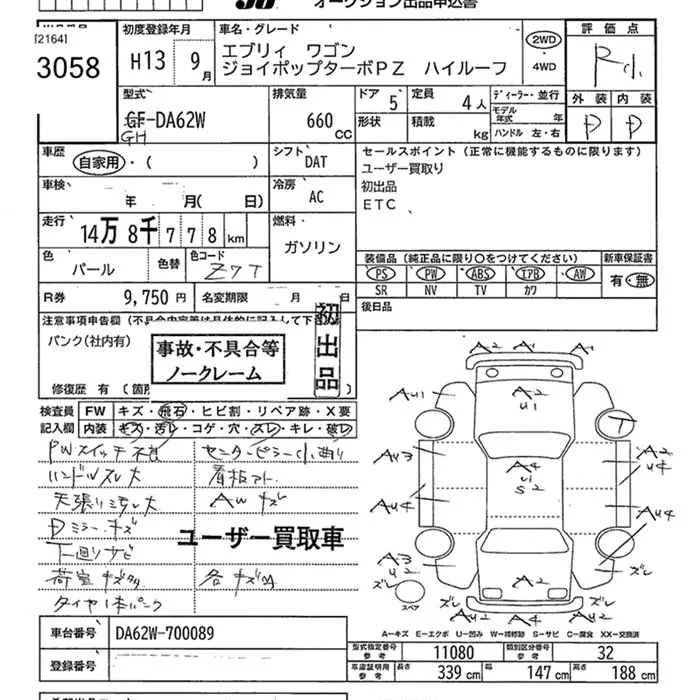 オークション出品申込書
[2164]
3058
初度登録年月
H13 9月
車名・グレード
エブリィ ワゴン
ジョイポップターボPZ ハイルーフ
2WD
4WD
評価点
外装 内装
D D
型式
GF-DA62W
GH
排気量
660 CC
ドア 5
形状
定員 4人
積載 kg
ディーラー・並行
モデル年式 年
ハンドル 左・右
車歴
自家用・( )
シフト DAT
セールスポイント (正常に機能するものに限ります)
ユーザー買取り
初出品
ETC
車検 年 月( 日)
冷房 AC
走行 14万 8千 7 7 8 km
燃料
ガソリン
色 パール
色替
色コード Z7T
装備品 (純正品に限り○をつけてください)
PS PW ABS エアB AW
SR NV TV カワ
新車保証書
有・無
R券 9,750 円
名変期限 月 日
後日品
注意事項申告欄
パンク(社内有)
事故・不具合等
ノークレーム
初出品
修復歴 有
検査員 FW キズ・飛石・ヒビ割・リペア跡・X要
記入欄 内装 キズ・汚レ・コゲ・穴・スレ・キレ・破レ
PWスイッチ不良 センターピラー小曲り
ハンドルスレ大 看板アト
天張り汚レ大 AWキズ
Dミラーキズ
下廻りサビ
ユーザー買取車
荷室キズ
タイヤ1本パンク
A2 A1 A1
AU1 A2
U1
T
AU3 A4
U1
S2
A2
U4
AU4 AU4
A3
U2
A2
ズレ スペア ズレ
ズレ A2 A4 A2 ズレ
A—キズ E—エクボ U—凹み W—補修跡 S—サビ C—腐食 XX—交換済
車台番号 DA62W-700089
登録番号
型式指定番号 参考 11080
類別区分番号 参考 32
車庫証明用 参考 長さ 339 cm 幅 147 cm 高さ 188 cm